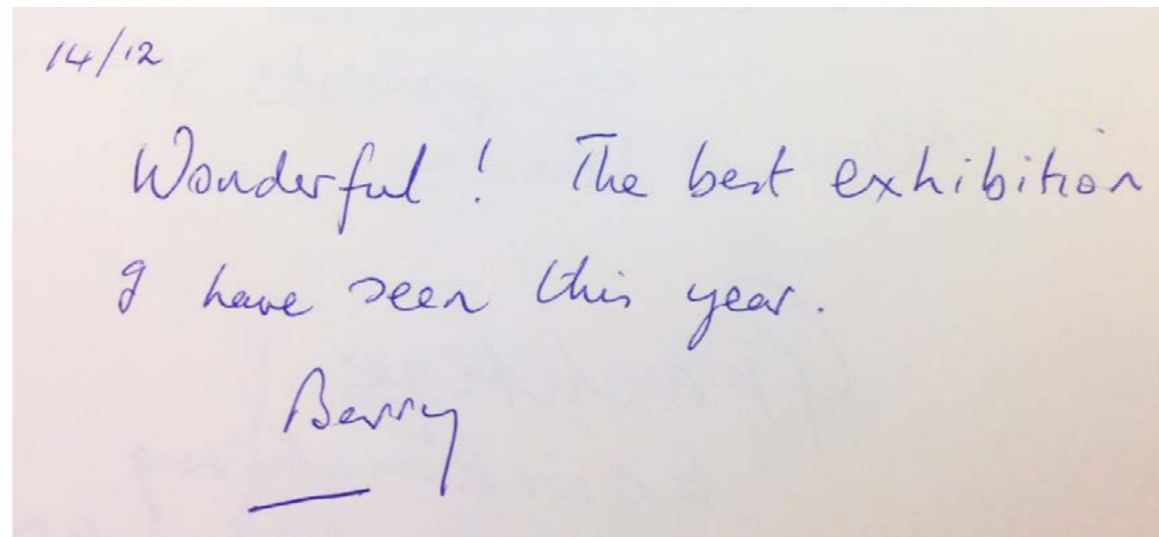 14/12
Wonderful! The best exhibition
I have seen this year.
Barry